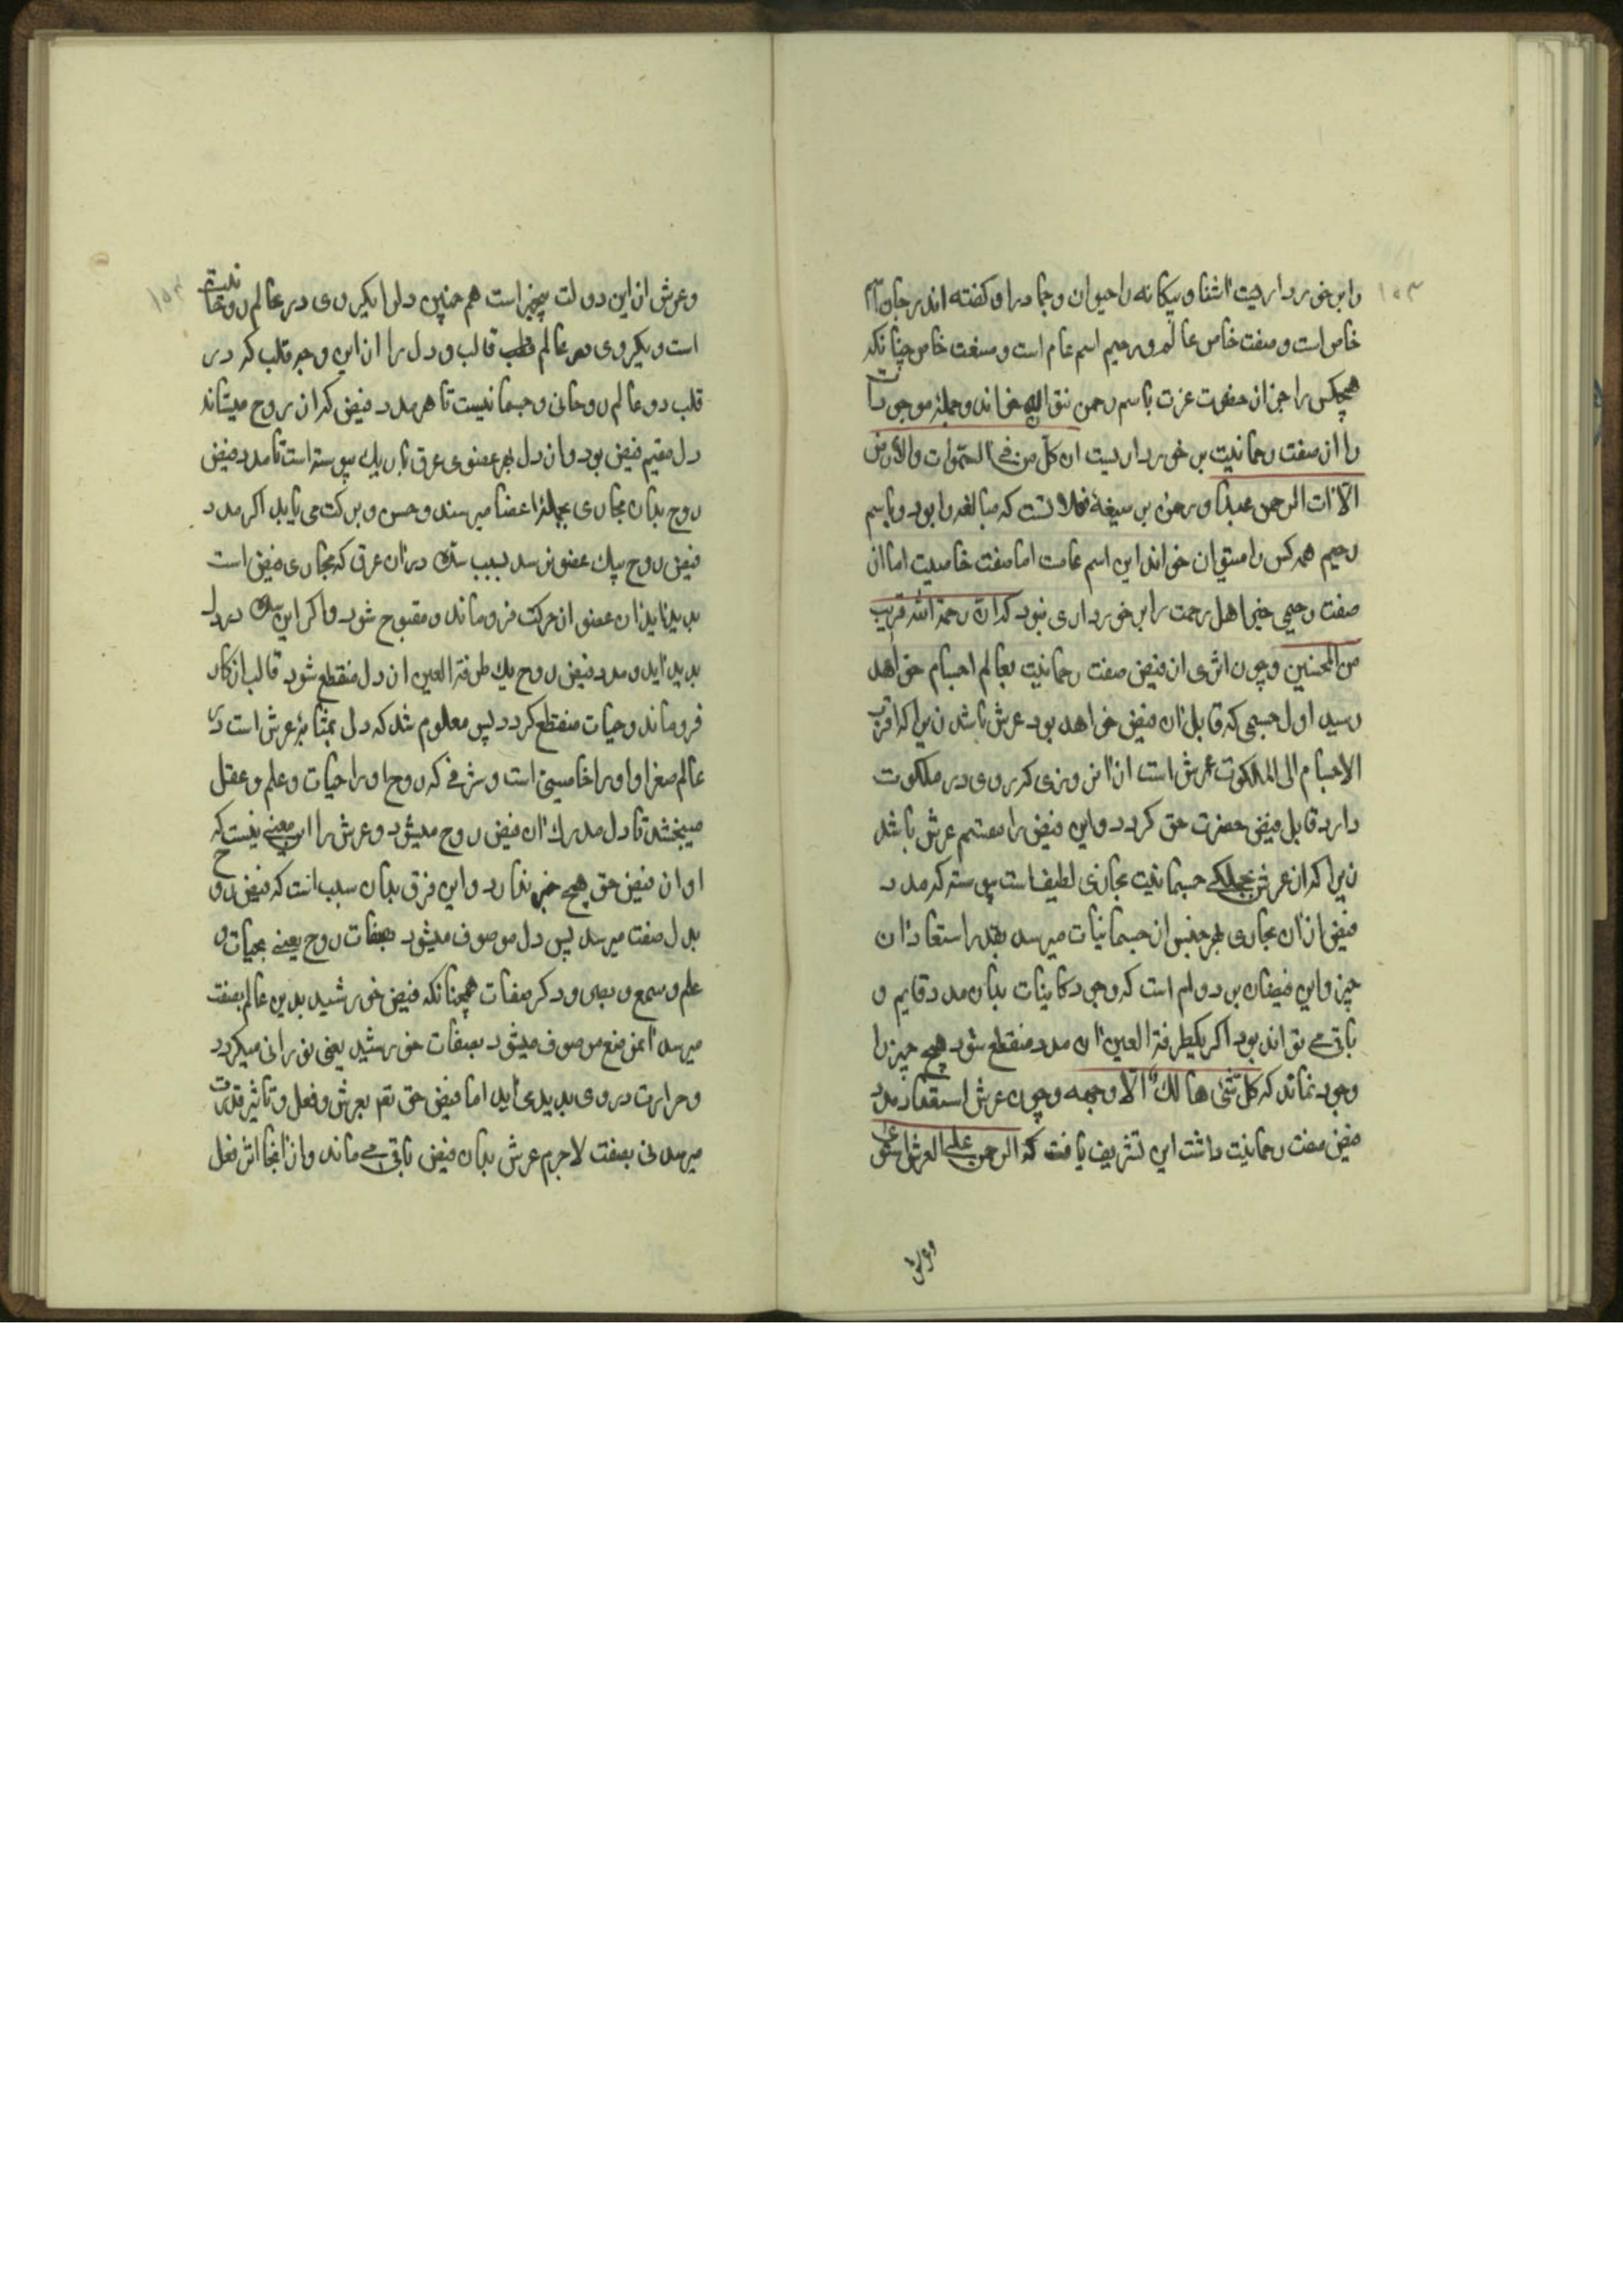 ۱۰۳
را برخورداریست آشنا و بیکانه را حیوان و جماد را و کفته اند رحمن اسم
خاص است و صفت خاص عالم و رحیم اسم عام است و صفت خاص چنانکه
هیچکس را جز از حضرت عزت باسم رحمن نتوان خواند و جمله موجودات
را از صفت رحمانیت برخورداریست ان کل من فی السموات والارض
الا آت الرحمن عبدا و رحمن بر صیغهٔ فعلانست که مبالغه را بود و باسم
رحیم همه کس را میتوان خواند این اسم عامست اما صفت خاصیت اما از
صفت رحیمی جز اهل رحمت را برخورداری نبود که ان رحمة الله قریب
من المحسنین و چون اثری از فیض صفت رحمانیت بعالم اجسام خواهد
رسید اول جسمی که قابل آن فیض خواهد بود عرش باشد زیرا که اقرب
الاجسام الی الملکوت عرش است از آن روی که روی در ملکوت
دارد قابل فیض حضرت حق کردد و این فیض را مقسم عرش باشد
زیرا که از عرش بجملکی جسمانیت مجاری لطیف است پیوسته که مدد
فیض از آن مجاری بهر جنس از جسمانیات میرسد بقدر استعداد آن
چیز و این فیضان بر دوام است که وجود کاینات بدان مدد قایم و
باقی می تواند بود اکر یکطرفة العین آن مدد منقطع شود هیچ چیز را
وجود نماند که کل شئ هالك الا وجهه و چون عرش استعداد مدد
فیض صفت رحمانیت داشت این تشریف یافت که الرحمن علی العرش استوی
و عرش
۱۰۴
و عرش از این دولت بیخبر است هم چنین دلرا یکروی در عالم روحانیت
است و یکروی در عالم قالب و دل را از این وجه قلب که در
قلب دو عالم روحانی و جسمانیست تا هر مدد فیض که از روح میستاند
دل مقسم فیض بود و از دل بهر عضوی عرقی باریك پیوسته است تا مدد فیض
روح بدان مجاری بجمله اعضا میرسد و حس و برکت می یابد اکر مدد
فیض روح بیك عضو نرسد بسبب سده در آن عرق که مجاری فیض است
پدید آید آن عضو از حرکت فرو ماند و مفلوج شود و اکر این سده در دل
پدید آید و مدد فیض روح یك طرفة العین از دل منقطع شود قالب از کار
فرو ماند و حیات منقطع کردد پس معلوم شد که دل بمثابهٔ عرش است در
عالم صغرا و او را خاصیتی است و شرفی که روح او را حیات و علم و عقل
میبخشد تا دل مدرك آن فیض روح میشود و عرش را این معنی نیست که
او از فیض حق هیچ خبر ندارد و این فرق بدان سبب است که فیض روح
بدل صفت میرسد پس دل موصوف میشود بصفات روح یعنی بحیات و
علم و سمع و بصر و دکر صفات همچنانکه فیض خورشید بدین عالم بصفت
میرسد آن موضع موصوف میشود بصفات خورشید یعنی نورانی میکردد
و حرارت در وی پدید می آید اما فیض حق تع بعرش و فعل و تاثیر قدرت
میرسد نی بصفت لاجرم عرش بدان فیض باقی می ماند و از آنجا اثر فعل